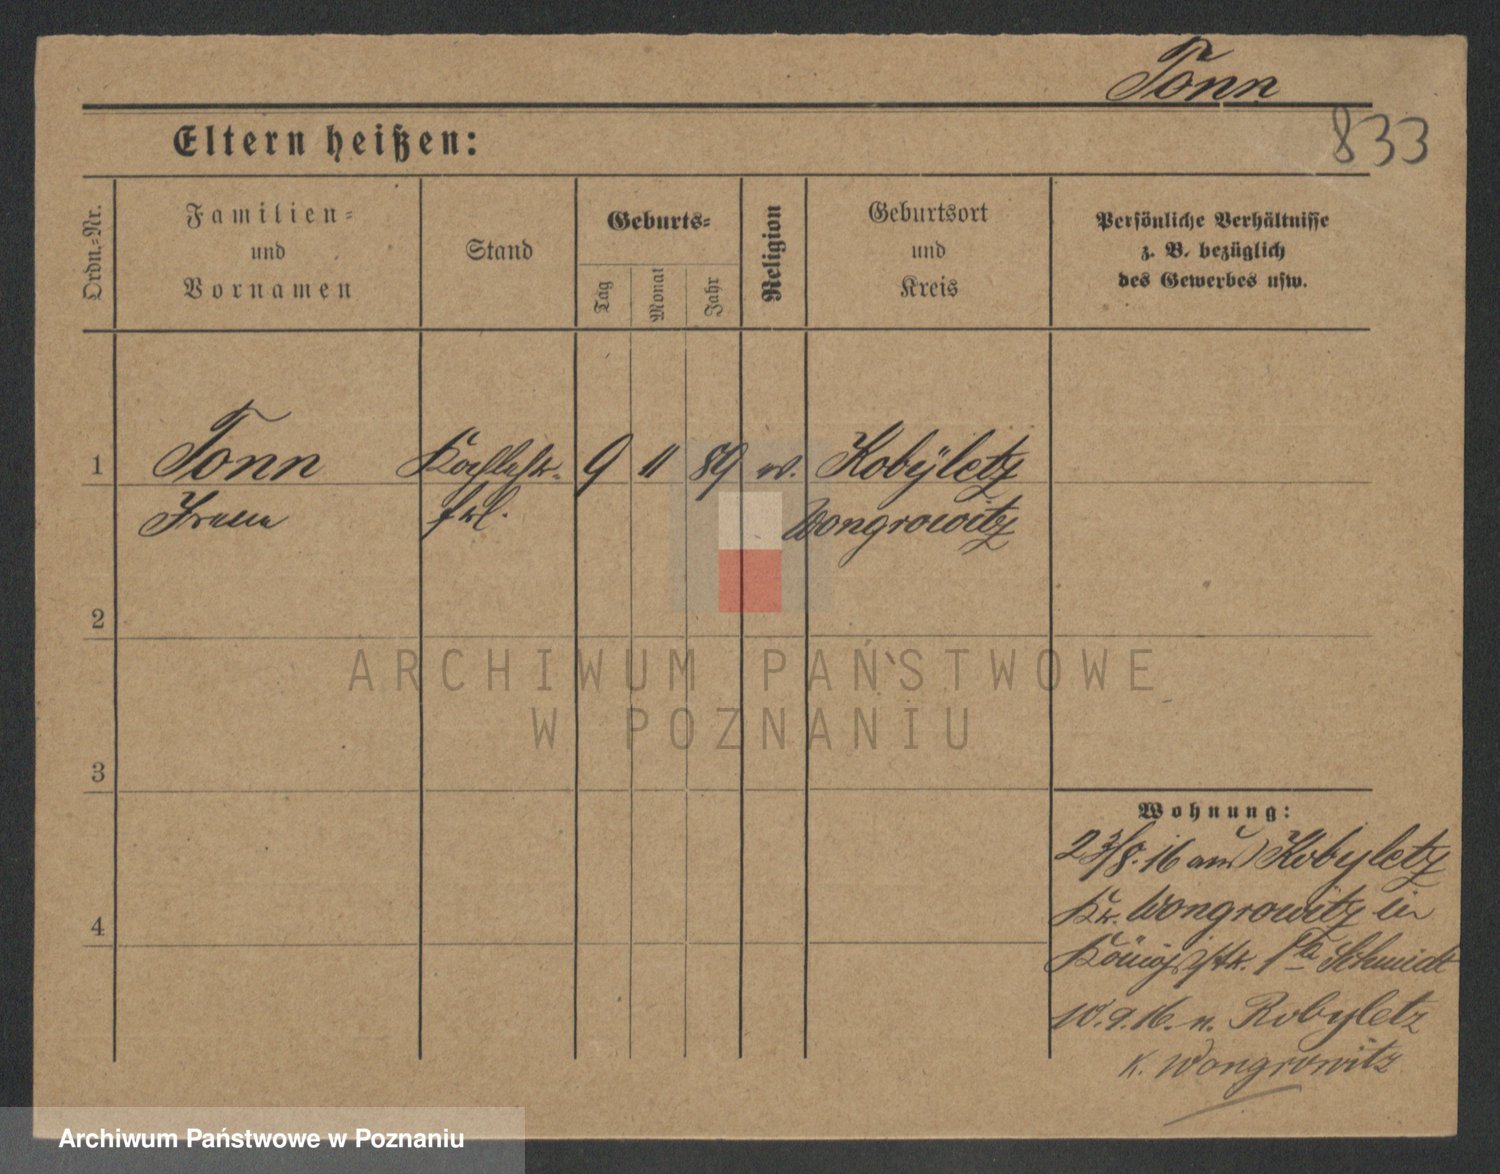 Tonn
833
Eltern heißen:
Ordn.-Nr.
Familien- und Vornamen
Stand
Geburts-
Tag
Monat
Jahr
Religion
Geburtsort und Kreis
Persönliche Verhältnisse
z. B. bezüglich
des Gewerbes usw.
1
Tonn 9 11 89 Kobyletz
frl. Wongrowitz
2
3
4
Wohnung:
23/8. 16 aus Kobyletz
Kr. Wongrowitz in
Königstr. Schmidt
10.9.16. n. Kobyletz
K. Wongrowitz
ARCHIWUM PAŃSTWOWE
W POZNANIU
Archiwum Państwowe w Poznaniu